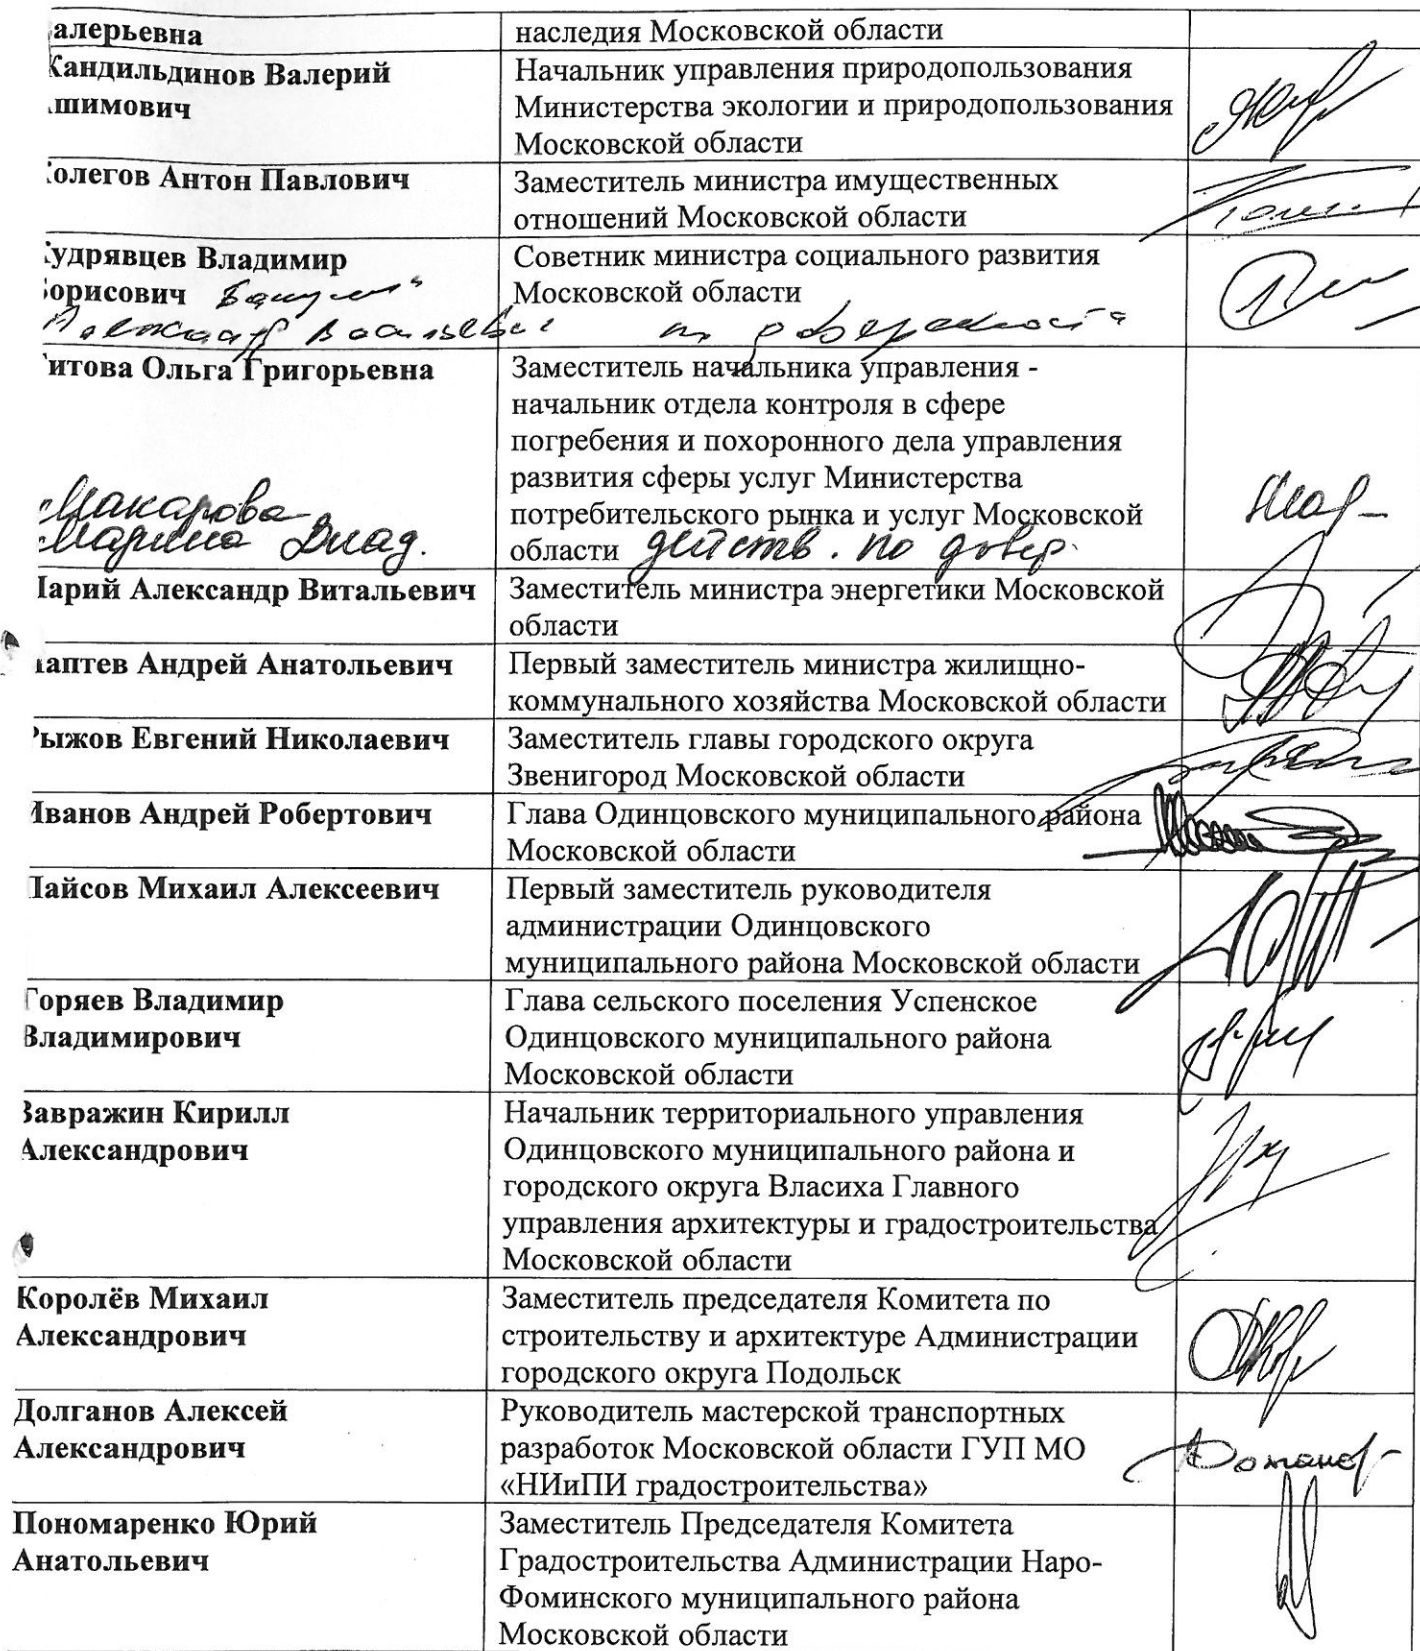 алерьевна
наследия Московской области
Кандильдинов Валерий
Начальник управления природопользования
шимович
Министерства экологии и природопользования
Московской области
олегов Антон Павлович
Заместитель министра имущественных
отношений Московской области
удрявцев Владимир
Советник министра социального развития
орисович
Московской области
итова Ольга Григорьевна
Заместитель начальника управления -
начальник отдела контроля в сфере
погребения и похоронного дела управления
развития сферы услуг Министерства
Макарова
потребительского рынка и услуг Московской
Марина Влад.
области действ. по довер.
арий Александр Витальевич
Заместитель министра энергетики Московской
области
аптев Андрей Анатольевич
Первый заместитель министра жилищно-
коммунального хозяйства Московской области
Рыжов Евгений Николаевич
Заместитель главы городского округа
Звенигород Московской области
Иванов Андрей Робертович
Глава Одинцовского муниципального района
Московской области
Пайсов Михаил Алексеевич
Первый заместитель руководителя
администрации Одинцовского
муниципального района Московской области
Горяев Владимир
Глава сельского поселения Успенское
Владимирович
Одинцовского муниципального района
Московской области
Завражин Кирилл
Начальник территориального управления
Александрович
Одинцовского муниципального района и
городского округа Власиха Главного
управления архитектуры и градостроительства
Московской области
Королёв Михаил
Заместитель председателя Комитета по
Александрович
строительству и архитектуре Администрации
городского округа Подольск
Долганов Алексей
Руководитель мастерской транспортных
Александрович
разработок Московской области ГУП МО
«НИиПИ градостроительства»
Пономаренко Юрий
Заместитель Председателя Комитета
Анатольевич
Градостроительства Администрации Наро-
Фоминского муниципального района
Московской области